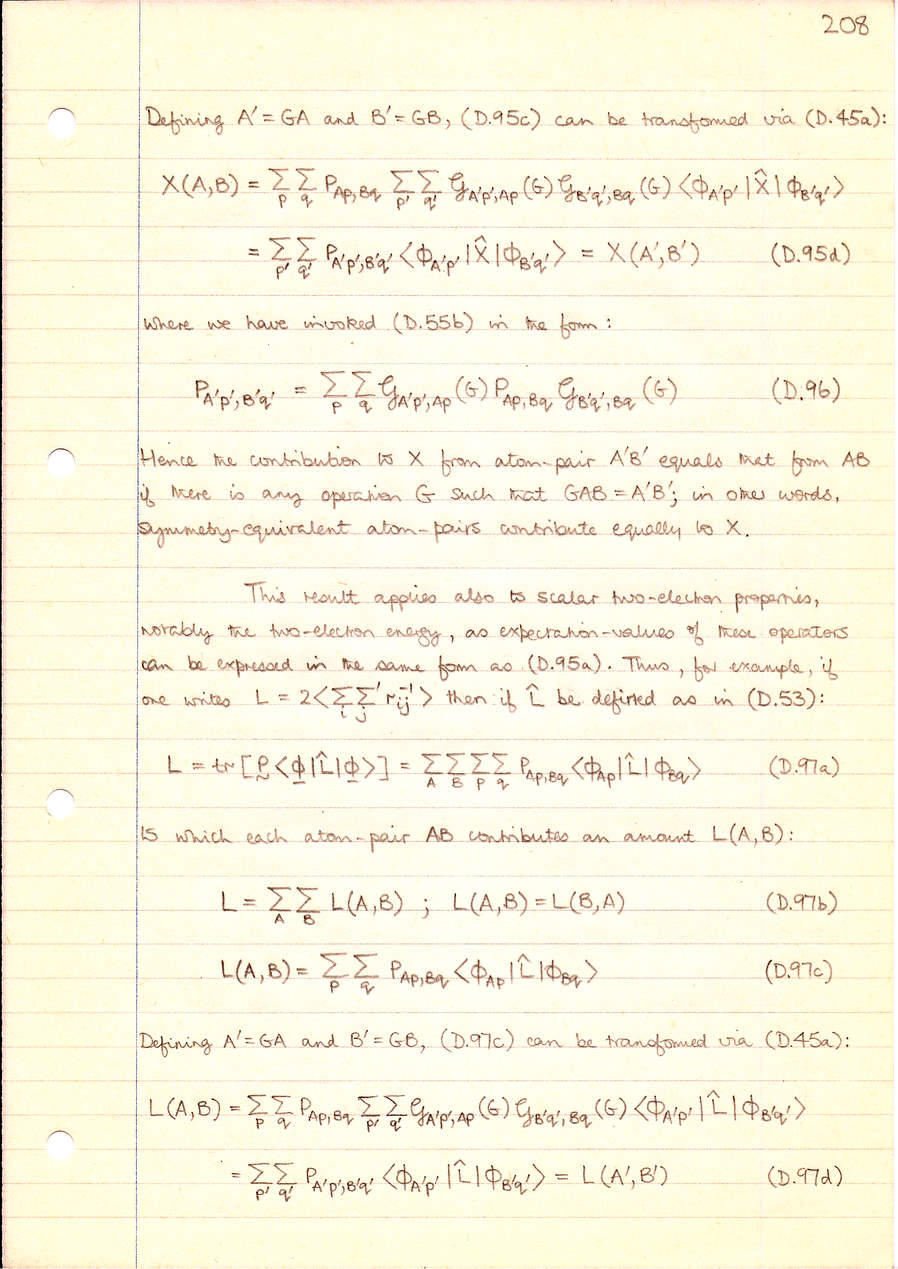 208
Defining A′ = GA and B′ = GB, (D.95c) can be transformed via (D.45a):
X(A,B) = ∑_p ∑_q P_{Ap,Bq} ∑_{p′} ∑_{q′} 𝒢_{A′p′,Ap}(G) 𝒢_{B′q′,Bq}(G) ⟨ϕ_{A′p′}|X̂|ϕ_{B′q′}⟩
= ∑_{p′} ∑_{q′} P_{A′p′,B′q′} ⟨ϕ_{A′p′}|X̂|ϕ_{B′q′}⟩ = X(A′,B′) (D.95d)
where we have invoked (D.55b) in the form:
P_{A′p′,B′q′} = ∑_p ∑_q 𝒢_{A′p′,Ap}(G) P_{Ap,Bq} 𝒢_{B′q′,Bq}(G) (D.96)
Hence the contribution to X from atom-pair A′B′ equals that from AB
if there is any operation G such that GAB = A′B′; in other words,
symmetry-equivalent atom-pairs contribute equally to X.
This result applies also to scalar two-electron properties,
notably the two-electron energy, as expectation-values of these operators
can be expressed in the same form as (D.95a). Thus, for example, if
one writes L = 2⟨∑_i ∑_j′ r_{ij}^{-1}⟩ then if L̂ be defined as in (D.53):
L = tr[P⟨ϕ|L̂|ϕ⟩] = ∑_A ∑_B ∑_p ∑_q P_{Ap,Bq} ⟨ϕ_{Ap}|L̂|ϕ_{Bq}⟩ (D.97a)
to which each atom-pair AB contributes an amount L(A,B):
L = ∑_A ∑_B L(A,B) ; L(A,B) = L(B,A) (D.97b)
L(A,B) = ∑_p ∑_q P_{Ap,Bq} ⟨ϕ_{Ap}|L̂|ϕ_{Bq}⟩ (D.97c)
Defining A′ = GA and B′ = GB, (D.97c) can be transformed via (D.45a):
L(A,B) = ∑_p ∑_q P_{Ap,Bq} ∑_{p′} ∑_{q′} 𝒢_{A′p′,Ap}(G) 𝒢_{B′q′,Bq}(G) ⟨ϕ_{A′p′}|L̂|ϕ_{B′q′}⟩
= ∑_{p′} ∑_{q′} P_{A′p′,B′q′} ⟨ϕ_{A′p′}|L̂|ϕ_{B′q′}⟩ = L(A′,B′) (D.97d)